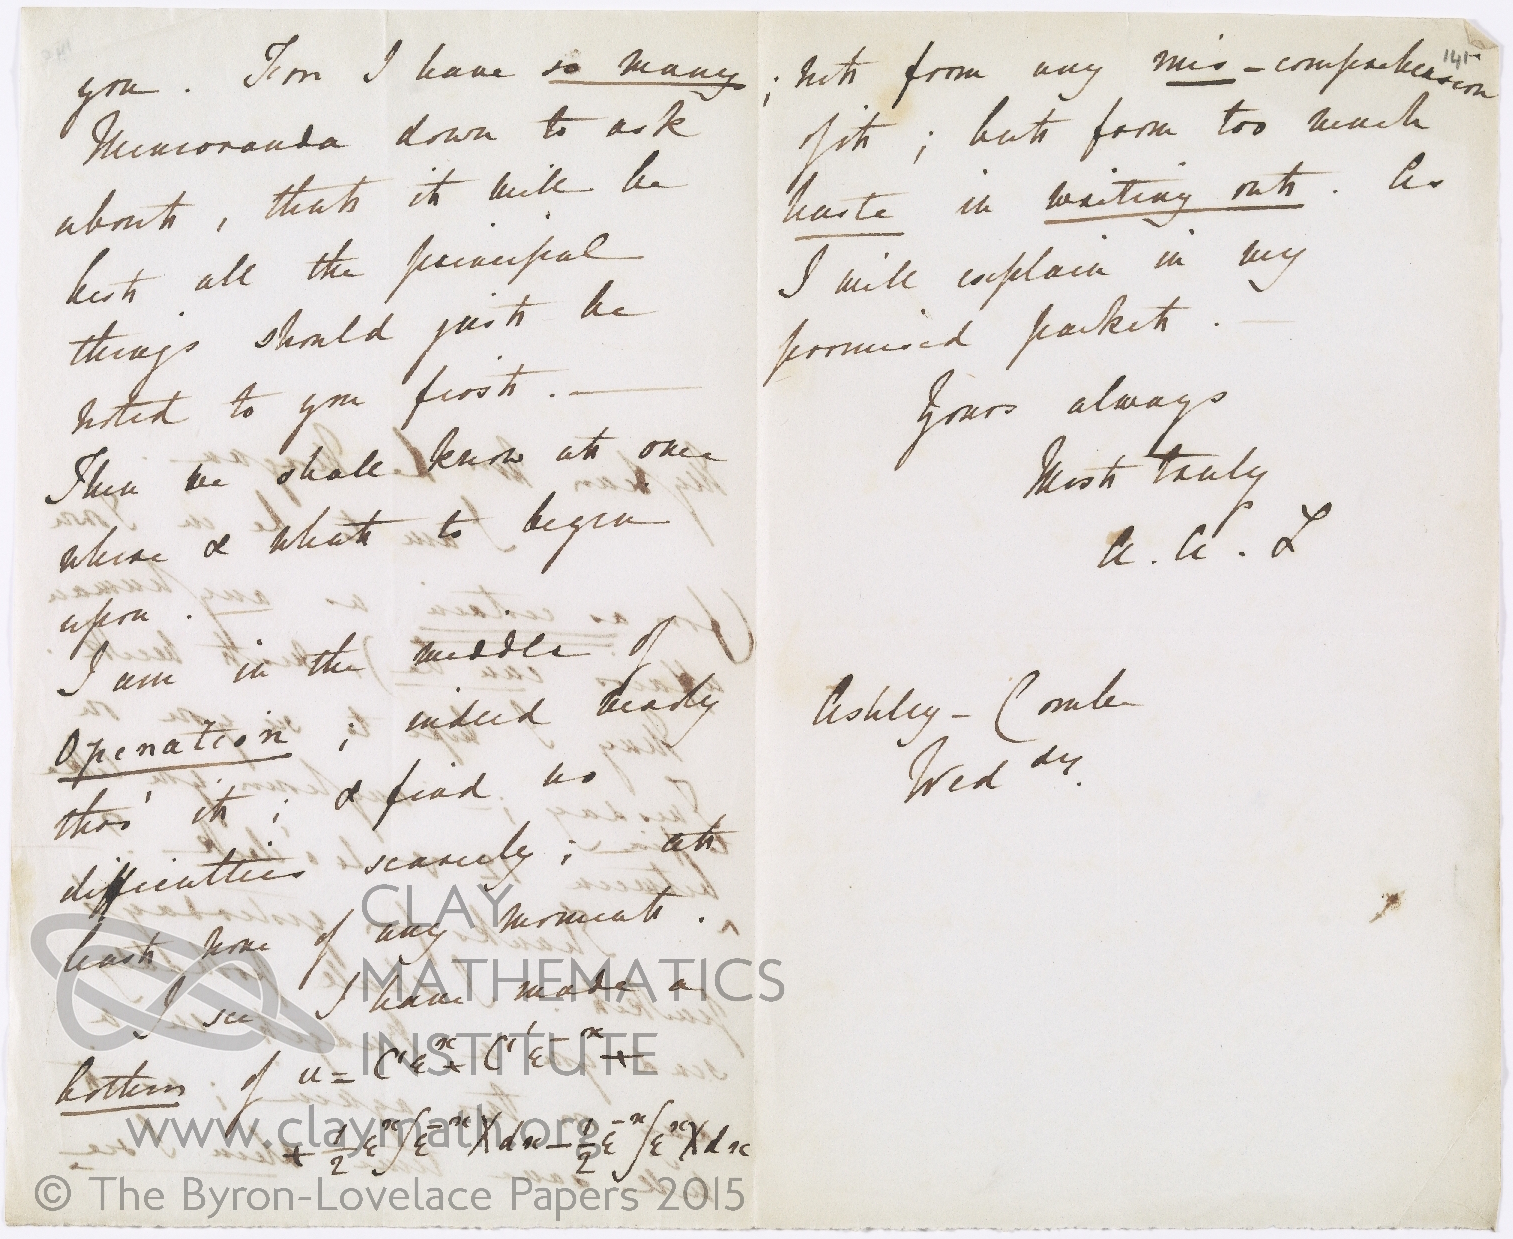 you. For I have so many
Memoranda down to ask
about, that it will be
best all the principal
things should just be
noted to you first. —
Then we shall know at once
where & what to begin
upon.
I am in the middle of
Operation; indeed nearly
thro' it; & find no
difficulties scarcely; at
least none of any moment.
I see I have made a
bother of u = C'ε^x + C'ε^-x +
+ 1/2 ε^x ∫ε^-x X dx − 1/2 ε^-x ∫ε^x X dx
145
; not from any mis-comprehension
of it; but from too much
haste in writing out. As
I will explain in my
promised packet. —
Yours always
Most truly
A. A. L
Ashley-Combe
Wed^dy.
CLAY
MATHEMATICS
INSTITUTE
www.claymath.org
© The Byron-Lovelace Papers 2015